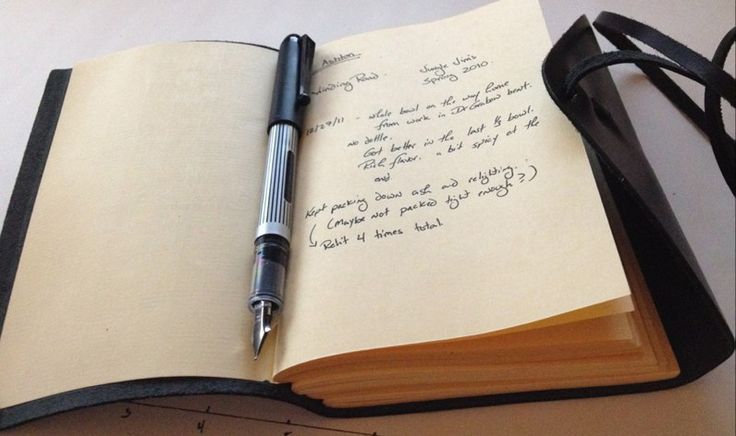 Ashton
Winding Road. Jungle Jim's
Spring 2010.
12/29/11 - whole bowl on the way home
from work in Dr Grabow bent.
no dottle.
Got better in the last 1/3 bowl.
Rich flavor. a bit spicy at the
end
Kept packing down ash and relighting.
( (Maybe not packed tight enough?)
→ Relit 4 times total
3
4
5